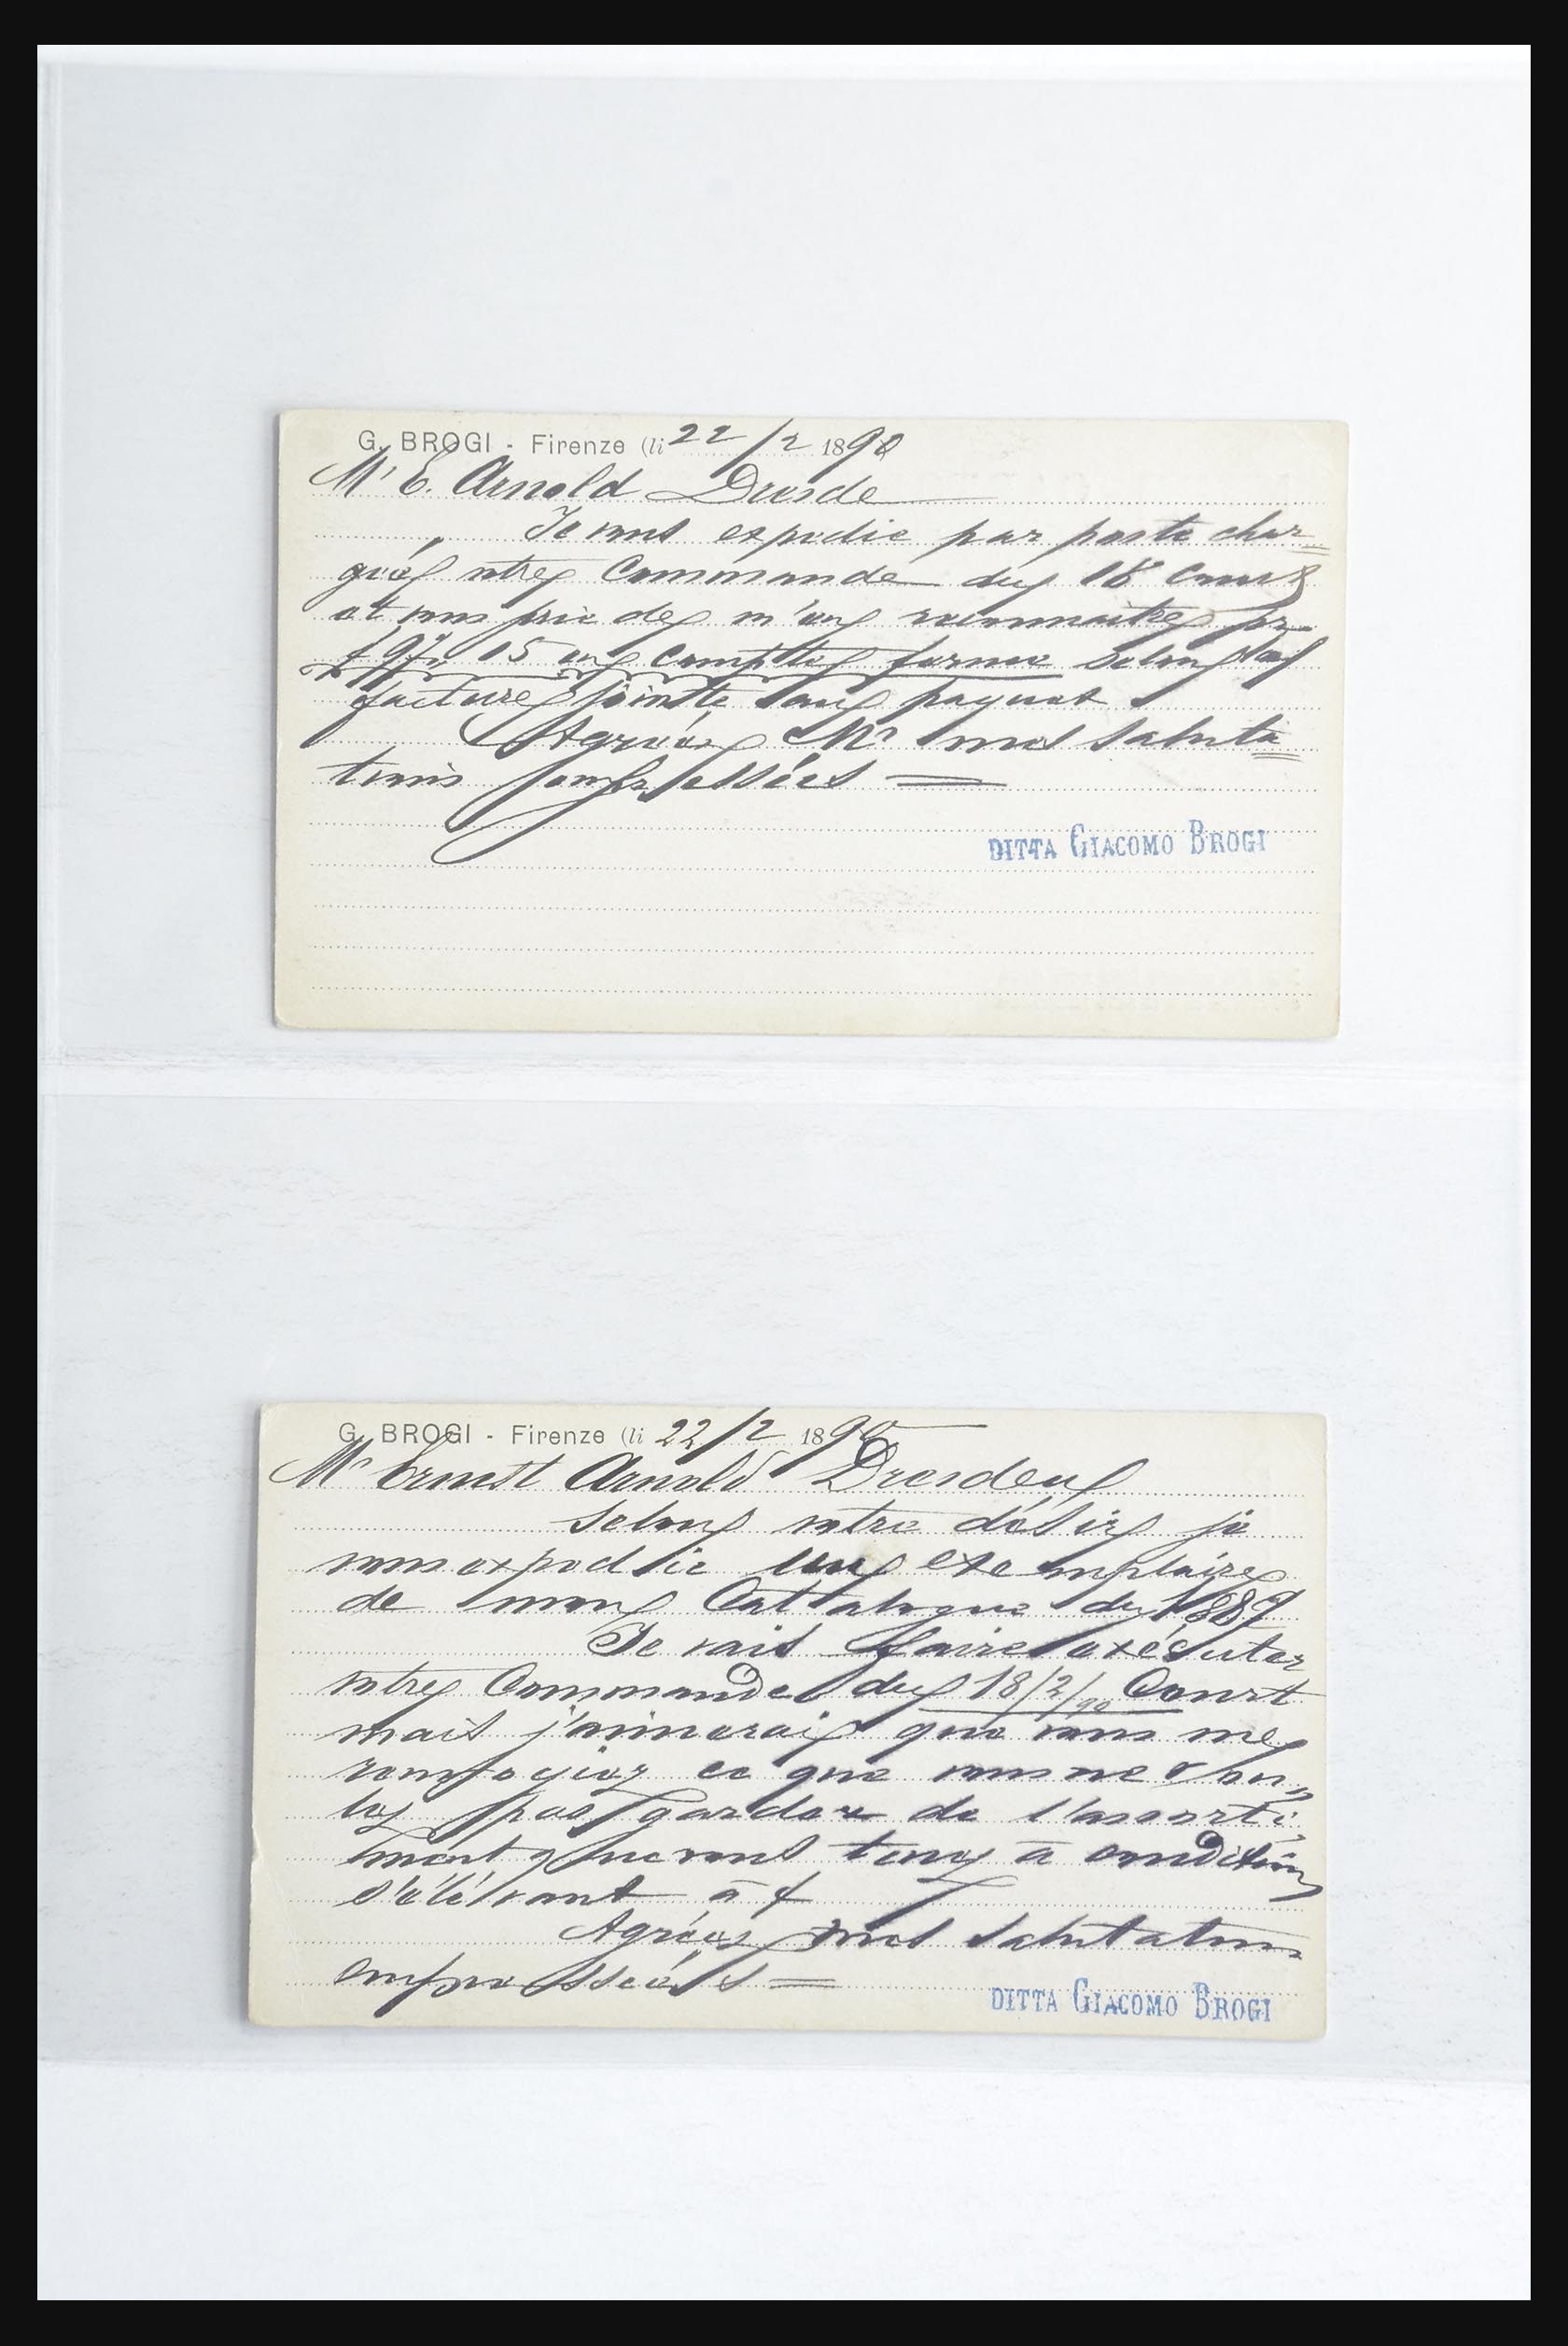 G. BROGI - Firenze (li 22/2 1890
Mr E. Arnold Dresde
Je vous expedie par poste char=
gée votre Commande du 18 Court
et vous prie de m'en reconnaitre pr
15 en compte ferme selon la
facture jointe au paquet
Agréés Mr mes saluta=
tions empressées =
DITTA GIACOMO BROGI
G. BROGI - Firenze (li 22/2 1890
Mr Ernest Arnold Dresden
Selon votre désir je
vous expedie un exemplaire
de mon Cattalogue du 1889
Je vais faire exécuter
votre Commande du 18/2/90 Court
mais j'aimerais que vous me
ce que vous ne vou=
lez pas garder de l'assorti=
ment que vous tenez à condition
s'élévant à f
Agréés mes salutations
empressées =
DITTA GIACOMO BROGI